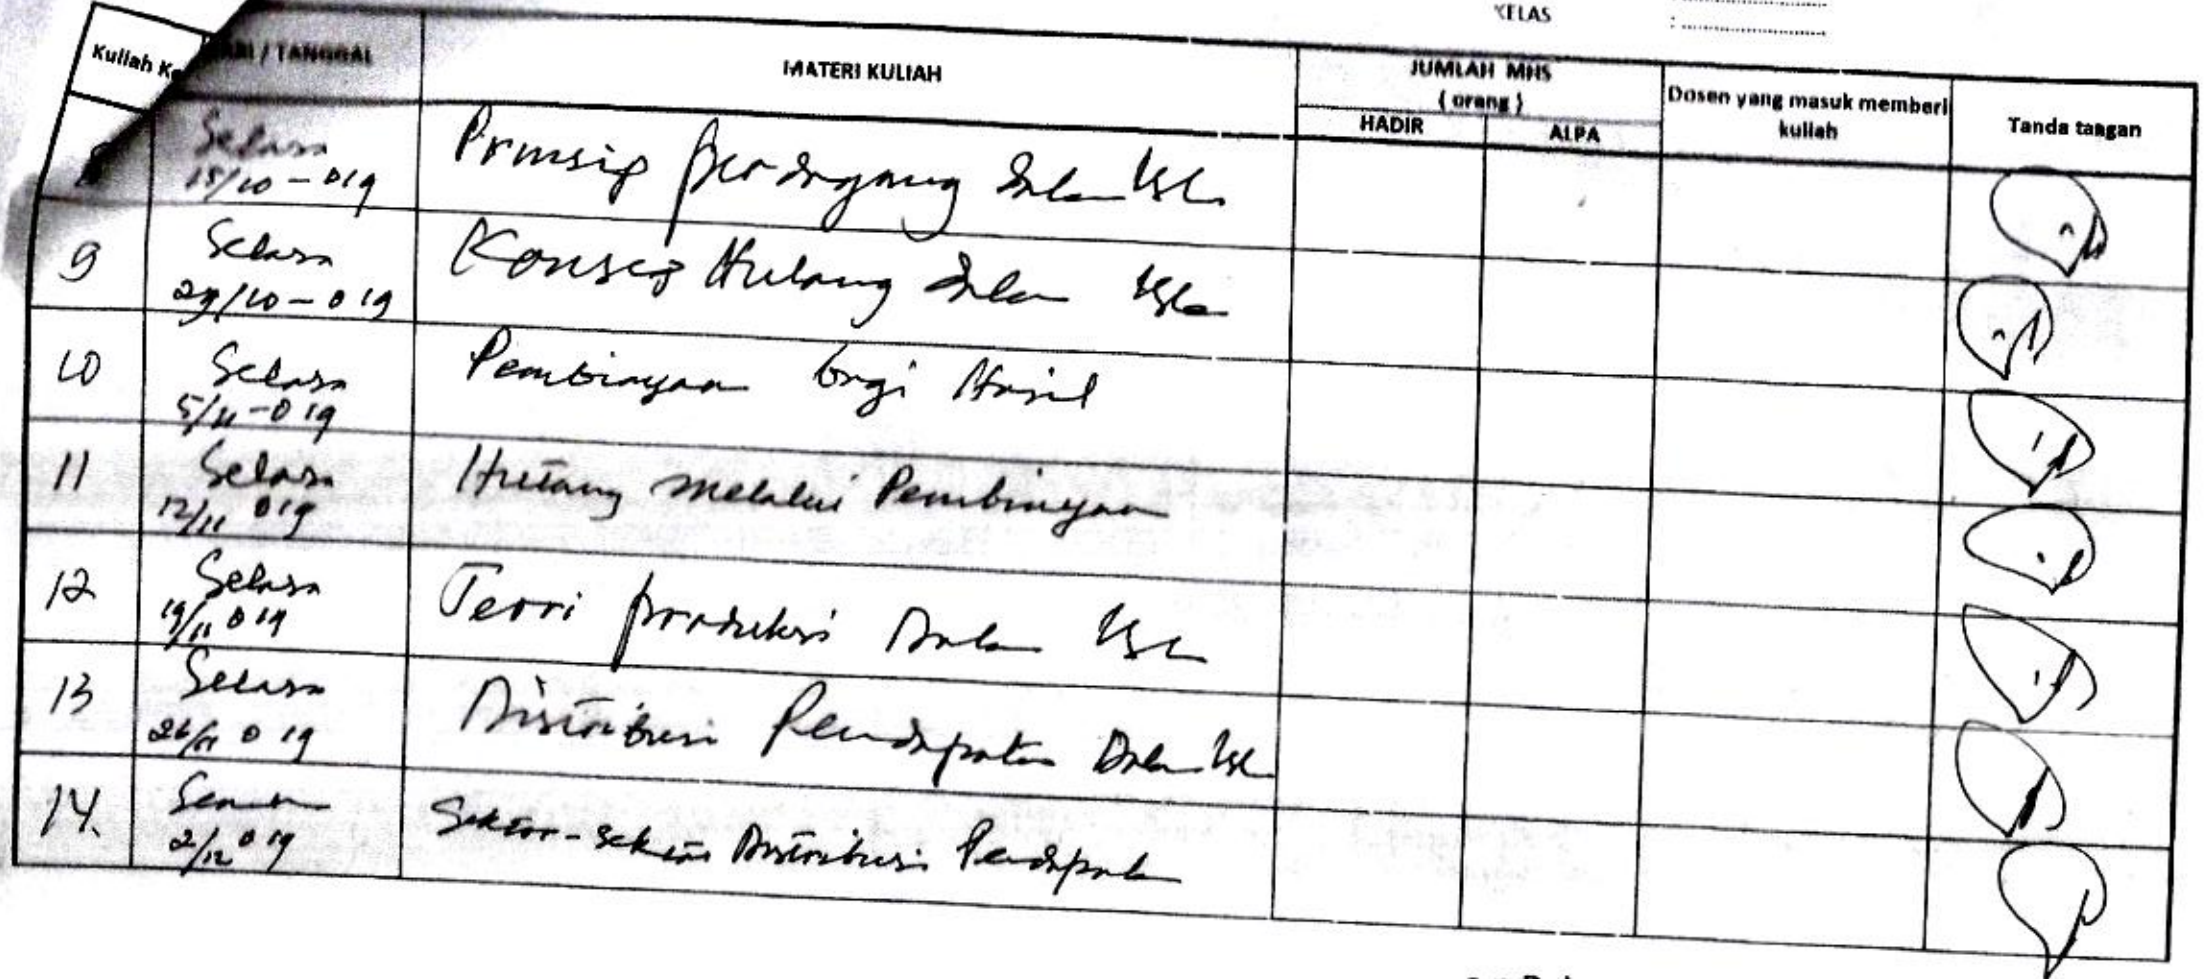 KELAS : ....................
Kuliah Ke
HARI / TANGGAL
MATERI KULIAH
JUMLAH MHS
( orang )
HADIR
ALPA
Dosen yang masuk memberi
kuliah
Tanda tangan
Selasa
15/10 - 019
Prinsip perdagang dalam Isl
9
Selasa
29/10 - 019
Konsep Hutang dalam Isla
10
Selasa
5/11 - 019
Pembiayaan bagi Hasil
11
Selasa
12/11 019
Hutang melalui Pembiayaan
12
Selasa
19/11 019
Teori produksi Dalam Isl
13
Selasa
26/11 019
Distribusi Pendapatan Dalam Isl
14.
Senin
2/12 019
Sektor-sektor Distribusi Pendapata